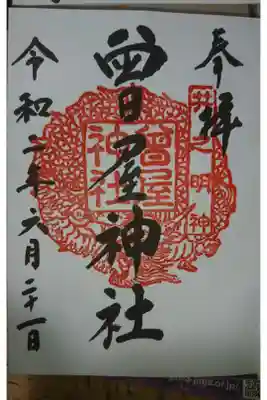 奉拝
井之明神
曽屋神社
曾屋神社
令和二年六月二十一日